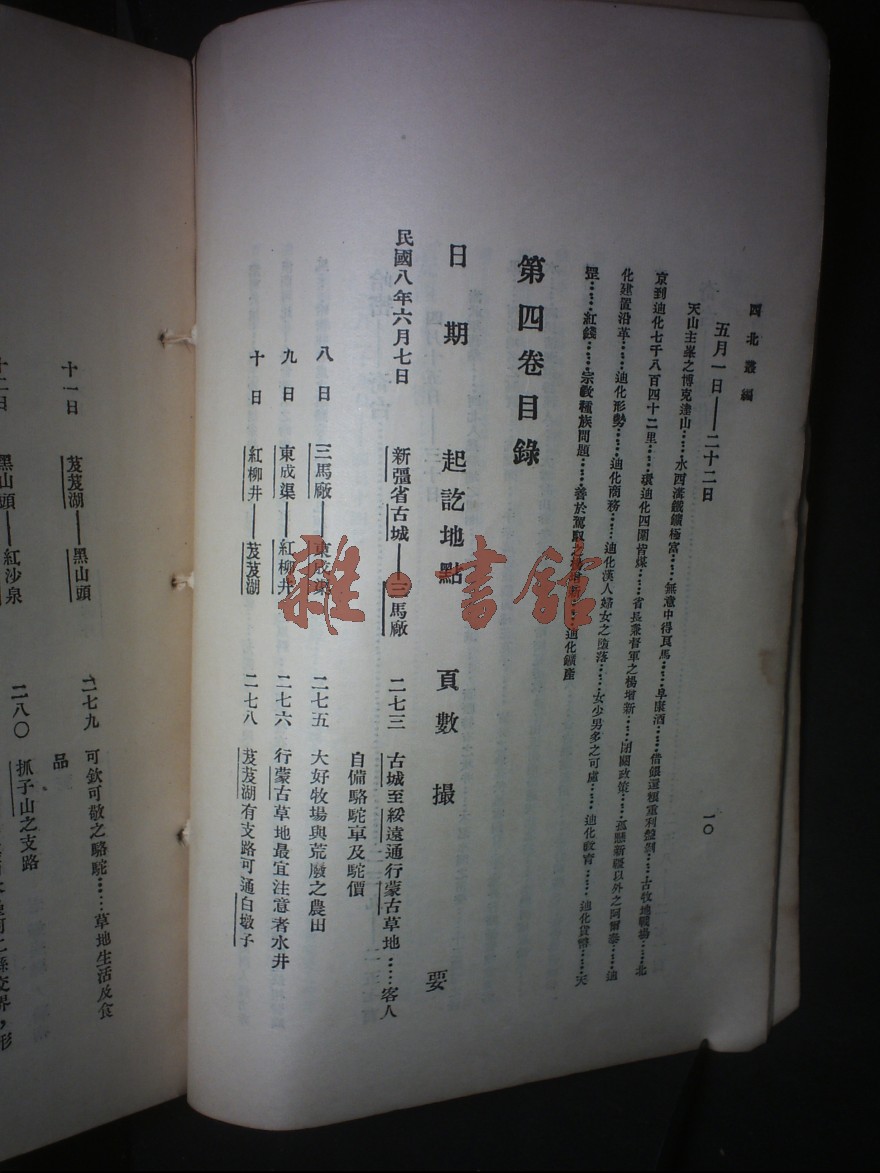 西北叢編
一〇
五月一日——二十二日
天山主峯之博克達山……水西溝鐵鑛極富……無意中得良馬……阜康酒……借銀還糧重利盤剝……古牧地戰場……北
京到迪化七千八百四十二里……環迪化四圍皆煤……省長兼督軍之楊增新……閉關政策……孤懸新疆以外之阿爾泰……迪
化建置沿革……迪化形勢……迪化商務……迪化漢人婦女之墮落……女少男多之可慮……迪化教育……迪化貨幣……天
罡……紅錢……宗敎種族問題……善於駕馭之楊增新……迪化鑛產
第四卷目錄
日期 起訖地點 頁數 撮要
民國八年六月七日 新疆省古城——三馬廠 二七三 古城至綏遠通行蒙古草地……客人
自備駱駝車及駝價
八日 三馬廠——東成渠 二七五 大好牧場與荒廢之農田
九日 東成渠——紅柳井 二七六 行蒙古草地最宜注意者水井
十日 紅柳井——芨芨湖 二七八 芨芨湖有支路可通白墩子
十一日 芨芨湖——黑山頭 二七九 可欽可敬之駱駝……草地生活及食
品
十二日 黑山頭——紅沙泉 二八〇 抓子山之支路
雜·書館